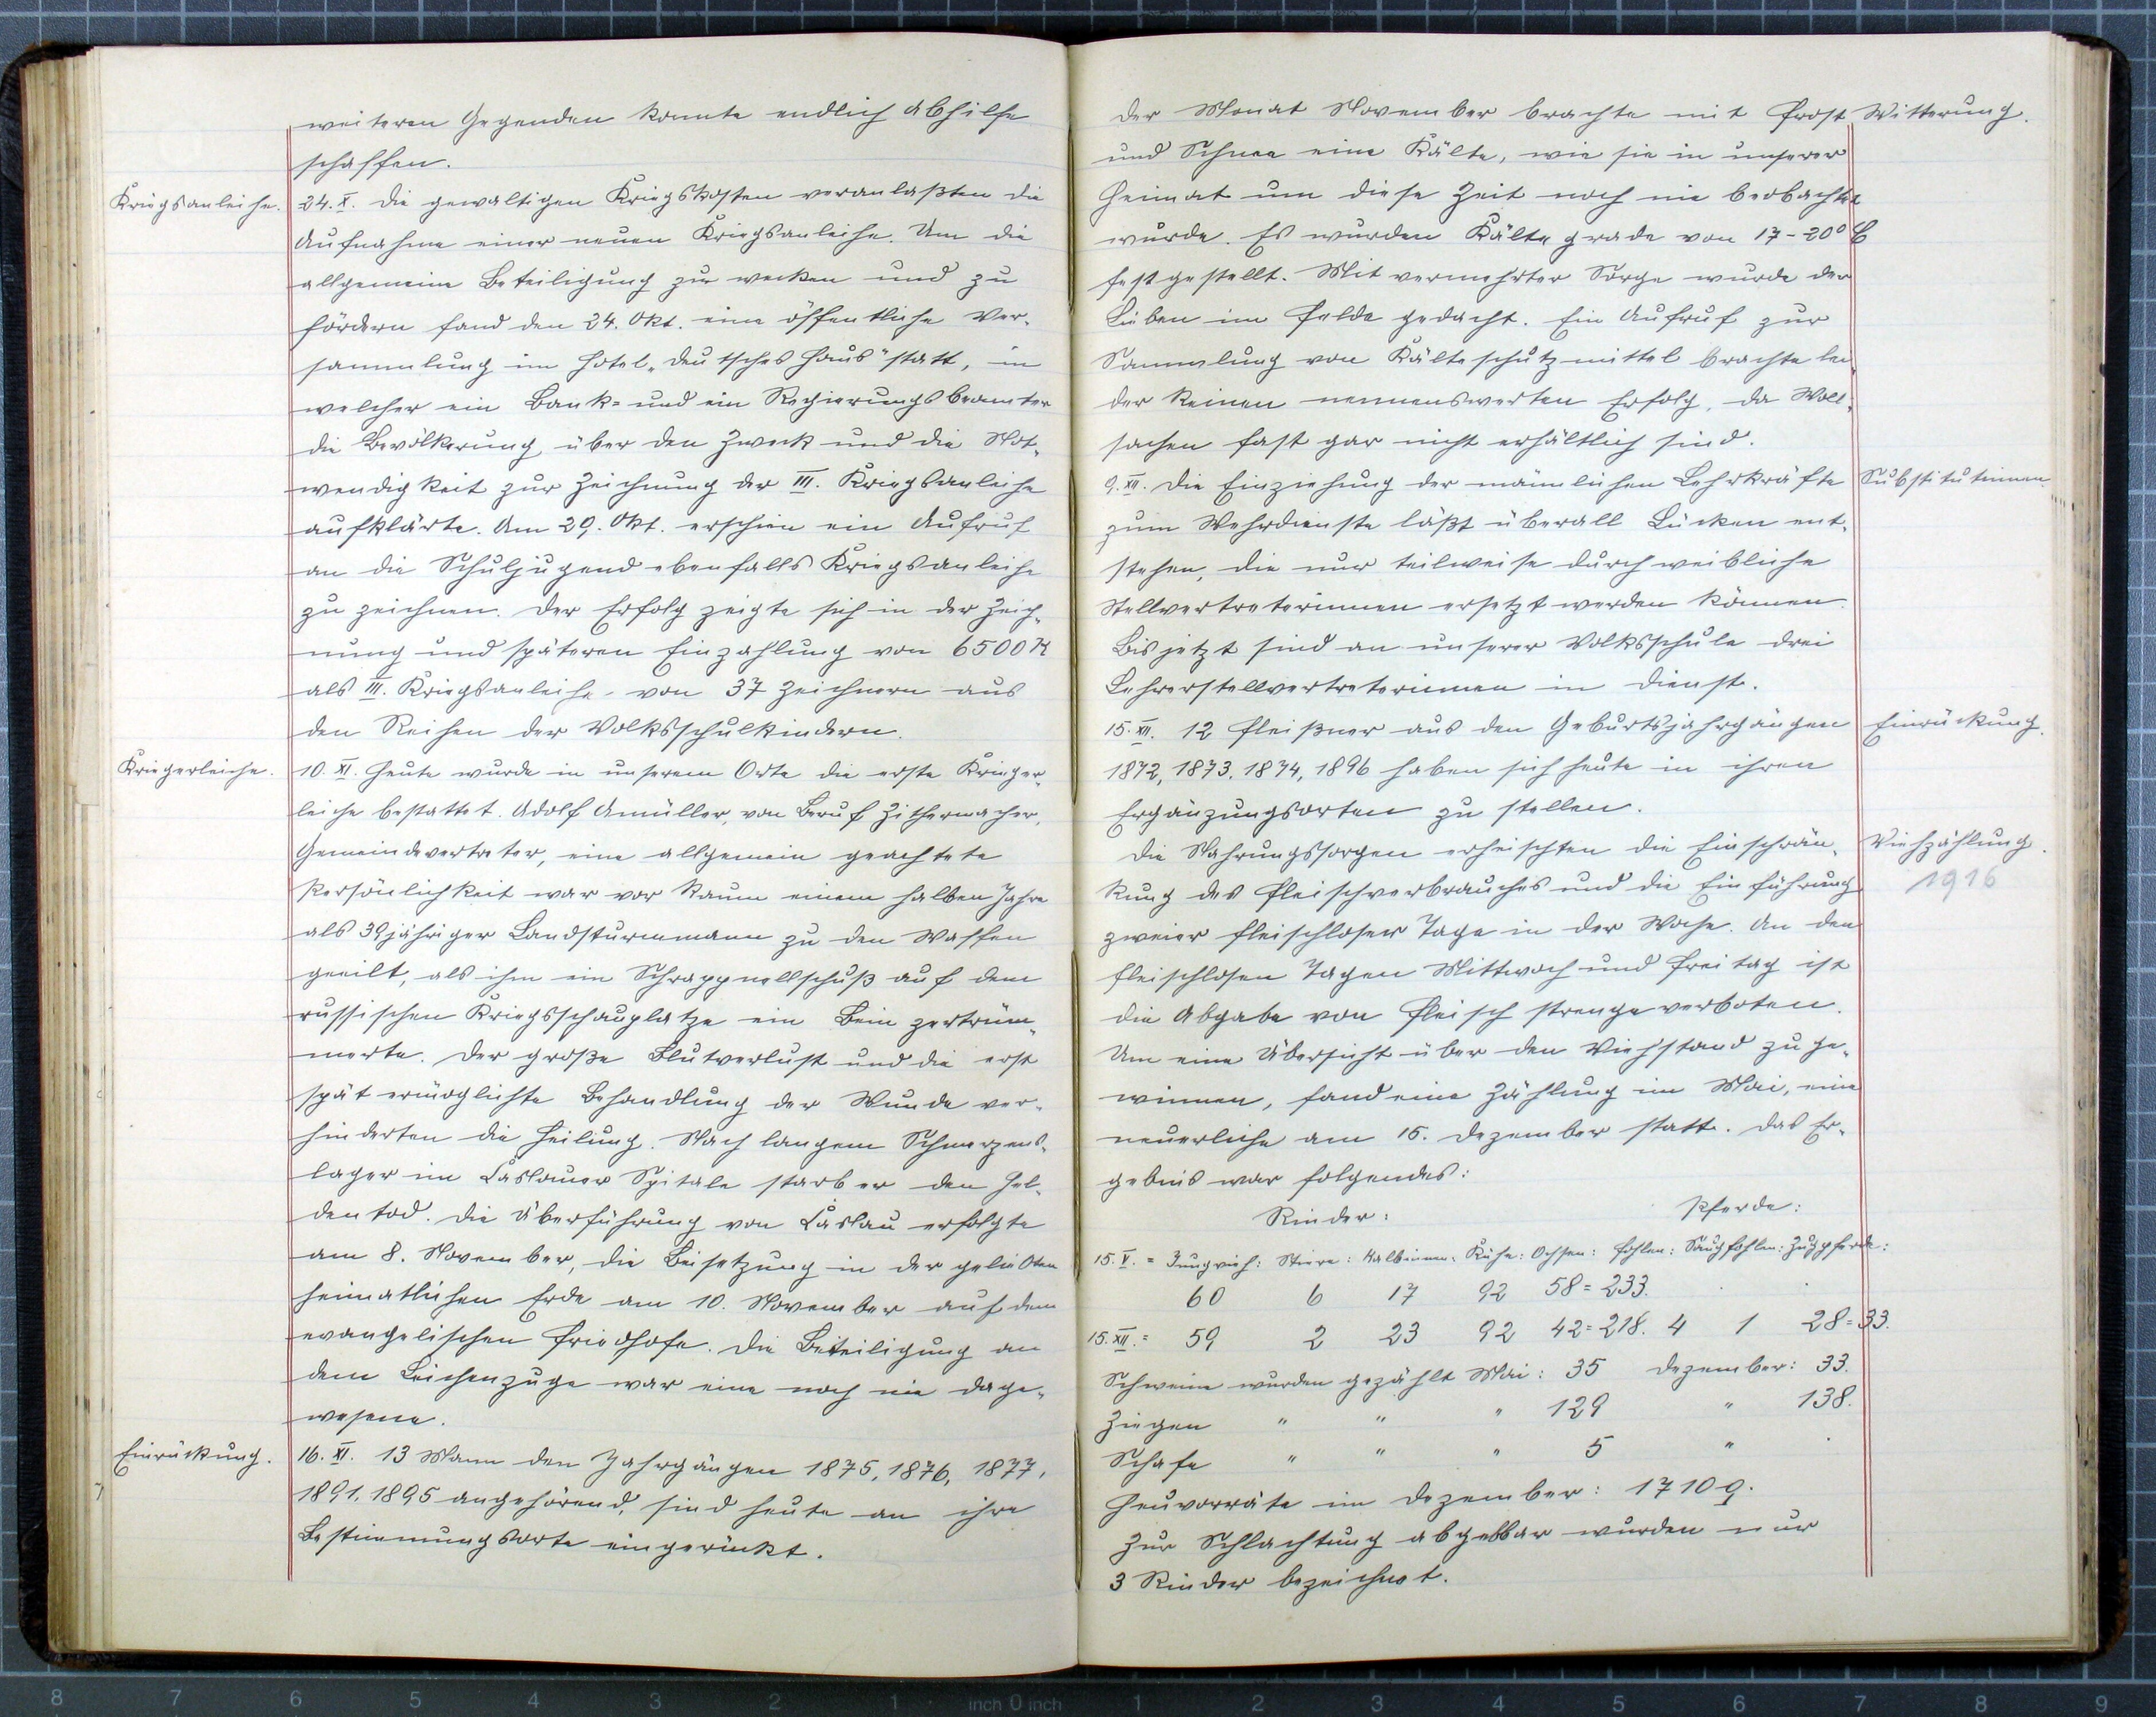 weiteren Gegenden konnte endlich Abhilfe
schaffen.
Kriegsanleihe.
24. X. Die gewaltigen Kriegskosten veranlaßten die
Aufnahme einer neuen Kriegsanleihe. Um die
allgemeine Beteiligung zu wecken und zu
fördern fand den 24. Okt. eine öffentliche Ver-
sammlung im Hotel „Deutsches Haus" statt, in
welcher ein Bank= und ein Regierungsbeamter
die Bevölkerung über den Zweck und die Not-
wendigkeit zur Zeichnung der III. Kriegsanleihe
aufklärte. Am 29. Okt. erschien ein Aufruf
an die Schuljugend ebenfalls Kriegsanleihe
zu zeichnen. Der Erfolg zeigte sich in der Zeich-
nung und späteren Einzahlung von 6500 K
als III. Kriegsanleihe von 37 Zeichnern aus
den Reihen der Volksschulkindern.
Kriegerleiche.
10. XI. Heute wurde in unserem Orte die erste Krieger-
leiche bestattet. Adolf Amüller, von Beruf Zithermacher,
Gemeindevertreter, eine allgemein geachtete
Persönlichkeit war vor kaum einem halben Jahre
als 39jähriger Landsturmmann zu den Waffen
geeilt, als ihm ein Schrappnellschuß auf dem
russischen Kriegsschauplatze ein Bein zertrüm-
merte. Der große Blutverlust und die erst
spät ermöglichte Behandlung der Wunde ver-
hinderten die Heilung. Nach langem Schmerzens-
lager im Časlauer Spitale starb er den Hel-
dentod. Die Überführung von Časlau erfolgte
am 8. November, die Beisetzung in der geliebten
heimatlichen Erde am 10. November auf dem
evangelischen Friedhofe. Die Beteiligung an
dem Leichenzuge war eine noch nie dage-
wesene.
Einrückung.
16. XI. 13 Mann den Jahrgängen 1875, 1876, 1877,
1891, 1895 angehörend, sind heute an ihre
Bestimmungsorte eingerückt.
Der Monat November brachte mit Frost
Witterung.
und Schnee eine Kälte, wie sie in unserer
Heimat um diese Zeit noch nie beobachtet
wurde. Es wurden Kältegrade von 17-20° C
festgestellt. Mit vermehrter Sorge wurde der
Lieben im Felde gedacht. Ein Aufruf zur
Sammlung von Kälteschutzmittel brachte lei-
der keinen nennenswerten Erfolg, da Woll-
sachen fast gar nicht erhältlich sind.
9. XII. Die Einziehung der männlichen Lehrkräfte
Substitutinnen.
zum Wehrdienste läßt überall Lücken ent-
stehen, die nur teilweise durch weibliche
Stellvertreterinnen ersetzt werden können.
Bis jetzt sind an unserer Volksschule drei
Lehrerstellvertreterinnen in Dienst.
15. XII. 12 Fleißner aus den Geburtsjahrgängen
Einrückung.
1872, 1873, 1874, 1896 haben sich heute in ihren
Ergänzungsorten zu stellen.
Die Nahrungssorgen erheischten die Einschrän-
Viehzählung.
1916
kung des Fleischverbrauches und die Einführung
zweier fleischloser Tage in der Woche. An den
fleischlosen Tagen Mittwoch und Freitag ist
die Abgabe von Fleisch strenge verboten.
Um eine Übersicht über den Viehstand zu ge-
winnen, fand eine Zählung im Mai, eine
neuerliche am 15. Dezember statt. Das Er-
gebnis war folgendes:
Rinder: Pferde:
15. V. = Jungvieh: Stiere: Kalbinnen: Kühe: Ochsen: Fohlen: Saugfohlen: Zugpferde:
60 6 17 92 58 = 233.
15. XII. = 59 2 23 92 42 = 218. 4 1 28 = 33.
Schweine wurden gezählt Mai: 35 Dezember: 33.
Ziegen " " " 129 " 138.
Schafe " " " 5 " .
Heuvorräte im Dezember: 1710 q.
Zur Schlachtung abgebbar wurden nur
3 Rinder bezeichnet.
8 7 6 5 4 3 2 1 inch 0 inch 1 2 3 4 5 6 7 8 9